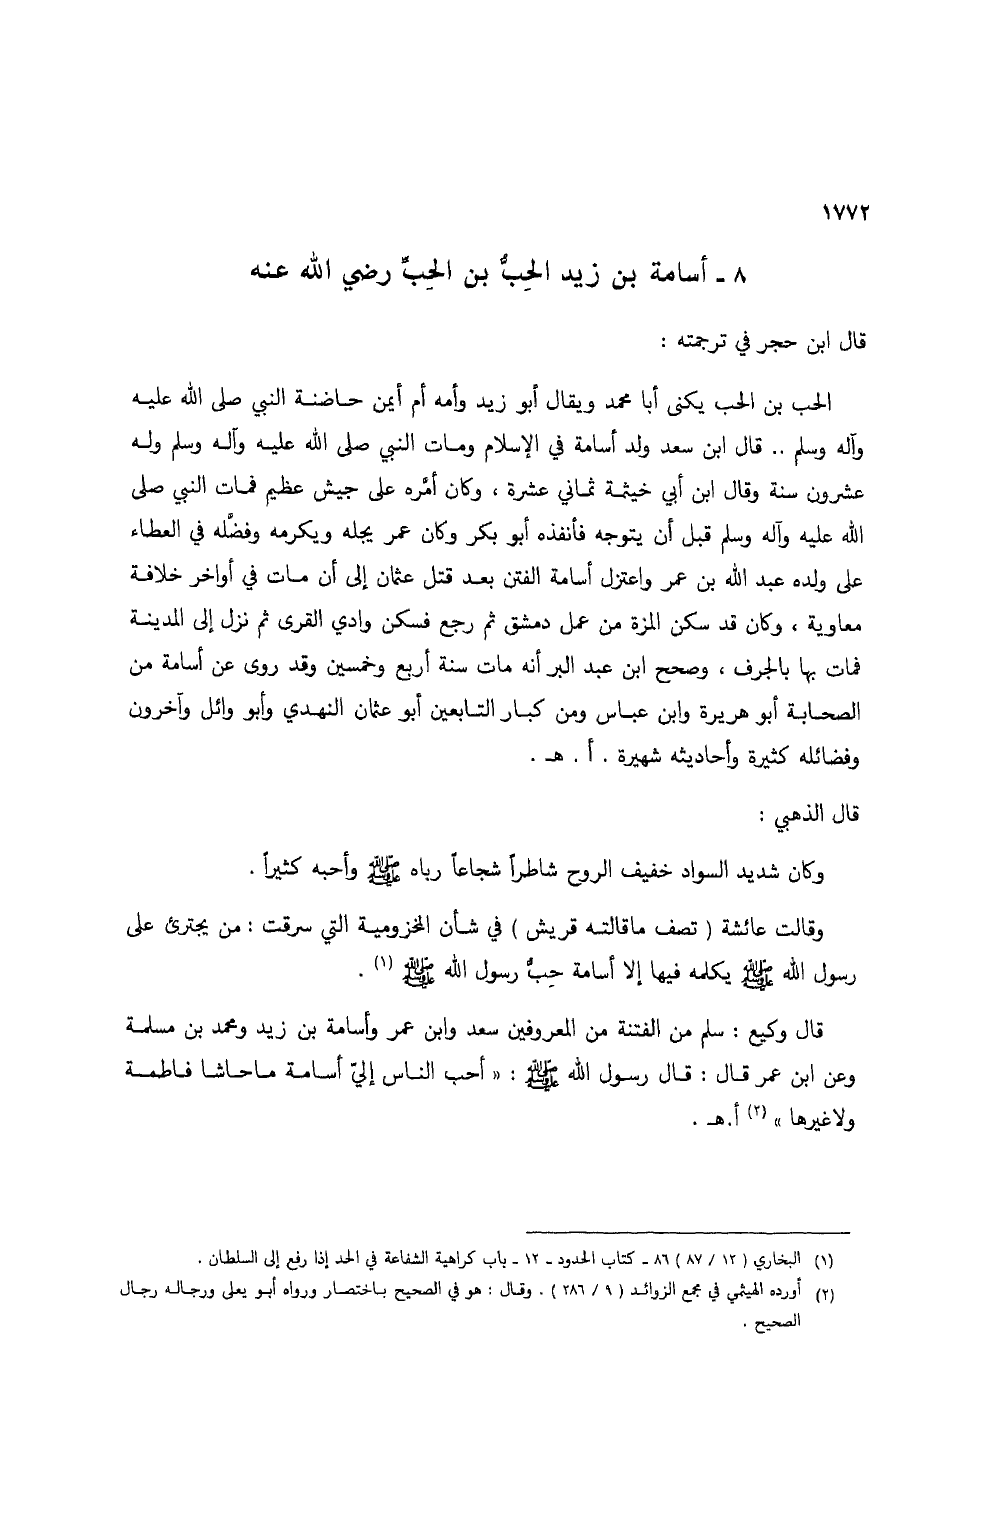 ١٧٧٢
٨ ـ أسامة بن زيد الحِبُّ بن الحِبِّ رضي الله عنه
قال ابن حجر في ترجمته :
الحب بن الحب يكنى أبا محمد ويقال أبو زيد وأمه أم أيمن حاضنة النبي صلى الله عليه
وآله وسلم .. قال ابن سعد ولد أسامة في الإسلام ومات النبي صلى الله عليه وآله وسلم وله
عشرون سنة وقال ابن أبي خيثمة ثماني عشرة ، وكان أمَّره على جيش عظيم فمات النبي صلى
الله عليه وآله وسلم قبل أن يتوجه فأنفذه أبو بكر وكان عمر يجله ويكرمه وفضَّله في العطاء
على ولده عبد الله بن عمر واعتزل أسامة الفتن بعد قتل عثمان إلى أن مات في أواخر خلافة
معاوية ، وكان قد سكن المزة من عمل دمشق ثم رجع فسكن وادي القرى ثم نزل إلى المدينة
فمات بها بالجرف ، وصحح ابن عبد البر أنه مات سنة أربع وخمسين وقد روى عن أسامة من
الصحابة أبو هريرة وابن عباس ومن كبار التابعين أبو عثمان النهدي وأبو وائل وآخرون
وفضائله كثيرة وأحاديثه شهيرة . أ . هـ .
قال الذهبي :
وكان شديد السواد خفيف الروح شاطراً شجاعاً رباه ﷺ وأحبه كثيراً .
وقالت عائشة ( تصف ماقالته قريش ) في شأن المخزومية التي سرقت : من يجترئ على
رسول الله ﷺ يكلمه فيها إلا أسامة حِبُّ رسول الله ﷺ (١) .
قال وكيع : سلم من الفتنة من المعروفين سعد وابن عمر وأسامة بن زيد ومحمد بن مسلمة
وعن ابن عمر قال : قال رسول الله ﷺ : « أحب الناس إليّ أسامة ماحاشا فاطمة
ولاغيرها » (٢) أ.هـ .
(١) البخاري ( ١٢ / ٨٧ ) ٨٦ ـ كتاب الحدود ـ ١٢ ـ باب كراهية الشفاعة في الحد إذا رفع إلى السلطان .
(٢) أورده الهيثمي في مجمع الزوائد ( ٩ / ٢٨٦ ) . وقال : هو في الصحيح باختصار ورواه أبو يعلى ورجاله رجال
الصحيح .